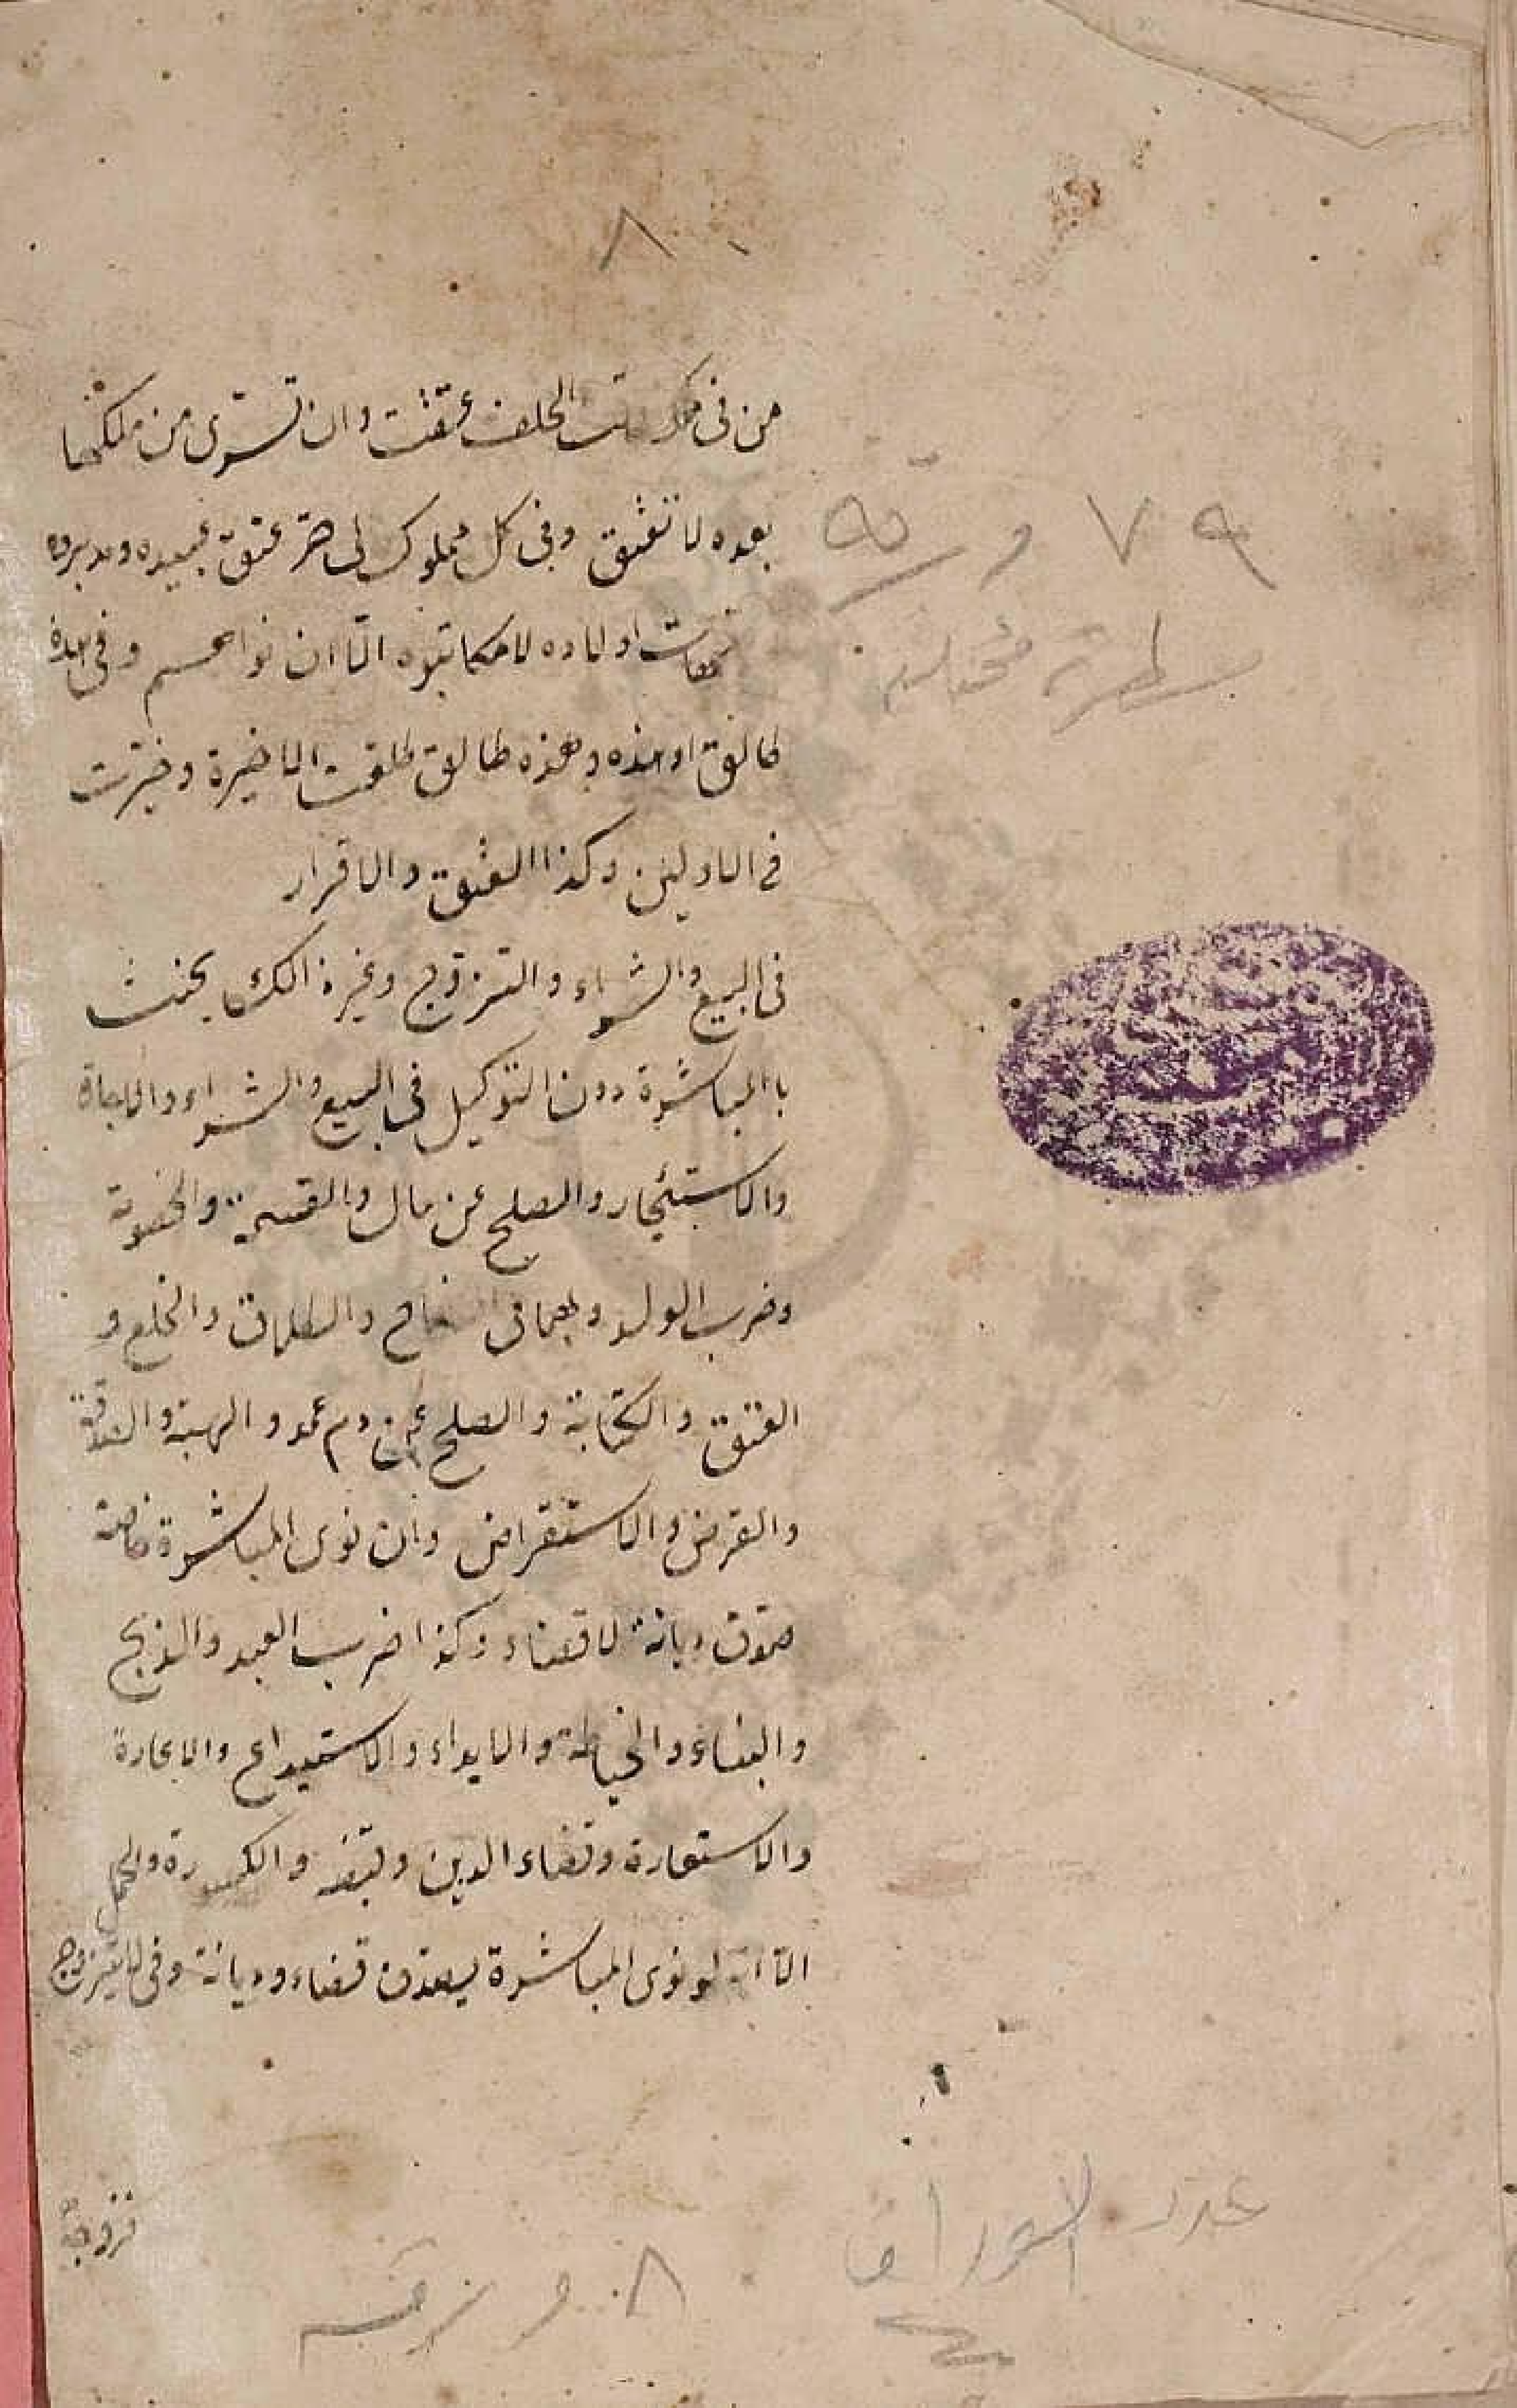 ٨٠
من فى ملكه وقت الحلف عتقت وان تسرى من ملكها
بعده لا تعتق وفى كل مملوك لى حر عتق عبيده ومدبروه
وامهات اولاده لا مكاتبوه الا ان نواهم وفى هذه
طالق او هذه وهذه طالق طلقت الاخيرة وخيرت
فى الاولين وكذا العتق والاقرار
فى البيع والشراء والتزوج وغير ذالك يحنث
باالمباشرة دون التوكيل فى البيع والشراء والاجاة
والاستئجار والصلح عن مال والقسمة والخصومة
وضرب الولد وبهما فى النكاح والطلاق والخلع و
العتق والكتابة والصلح عن دم عمد والهبة والصدقة
والقرض والاستقراض وان نوى المباشرة خاصة
صدق ديانة لا قضاء وكذا ضرب العبد والذبح
والبناء والخياطة والايداع والاستيداع والاعارة
والاستعارة وقضاء الدين وقبضه والكسوة والحمل
الا انه لو نوى المباشرة يصدق قضاء وديانة وفى لا يتزوج
فزوجه
٧٩ ورقة
سطرة مختلفة
عدد الاوراق
٨٠ ورقة